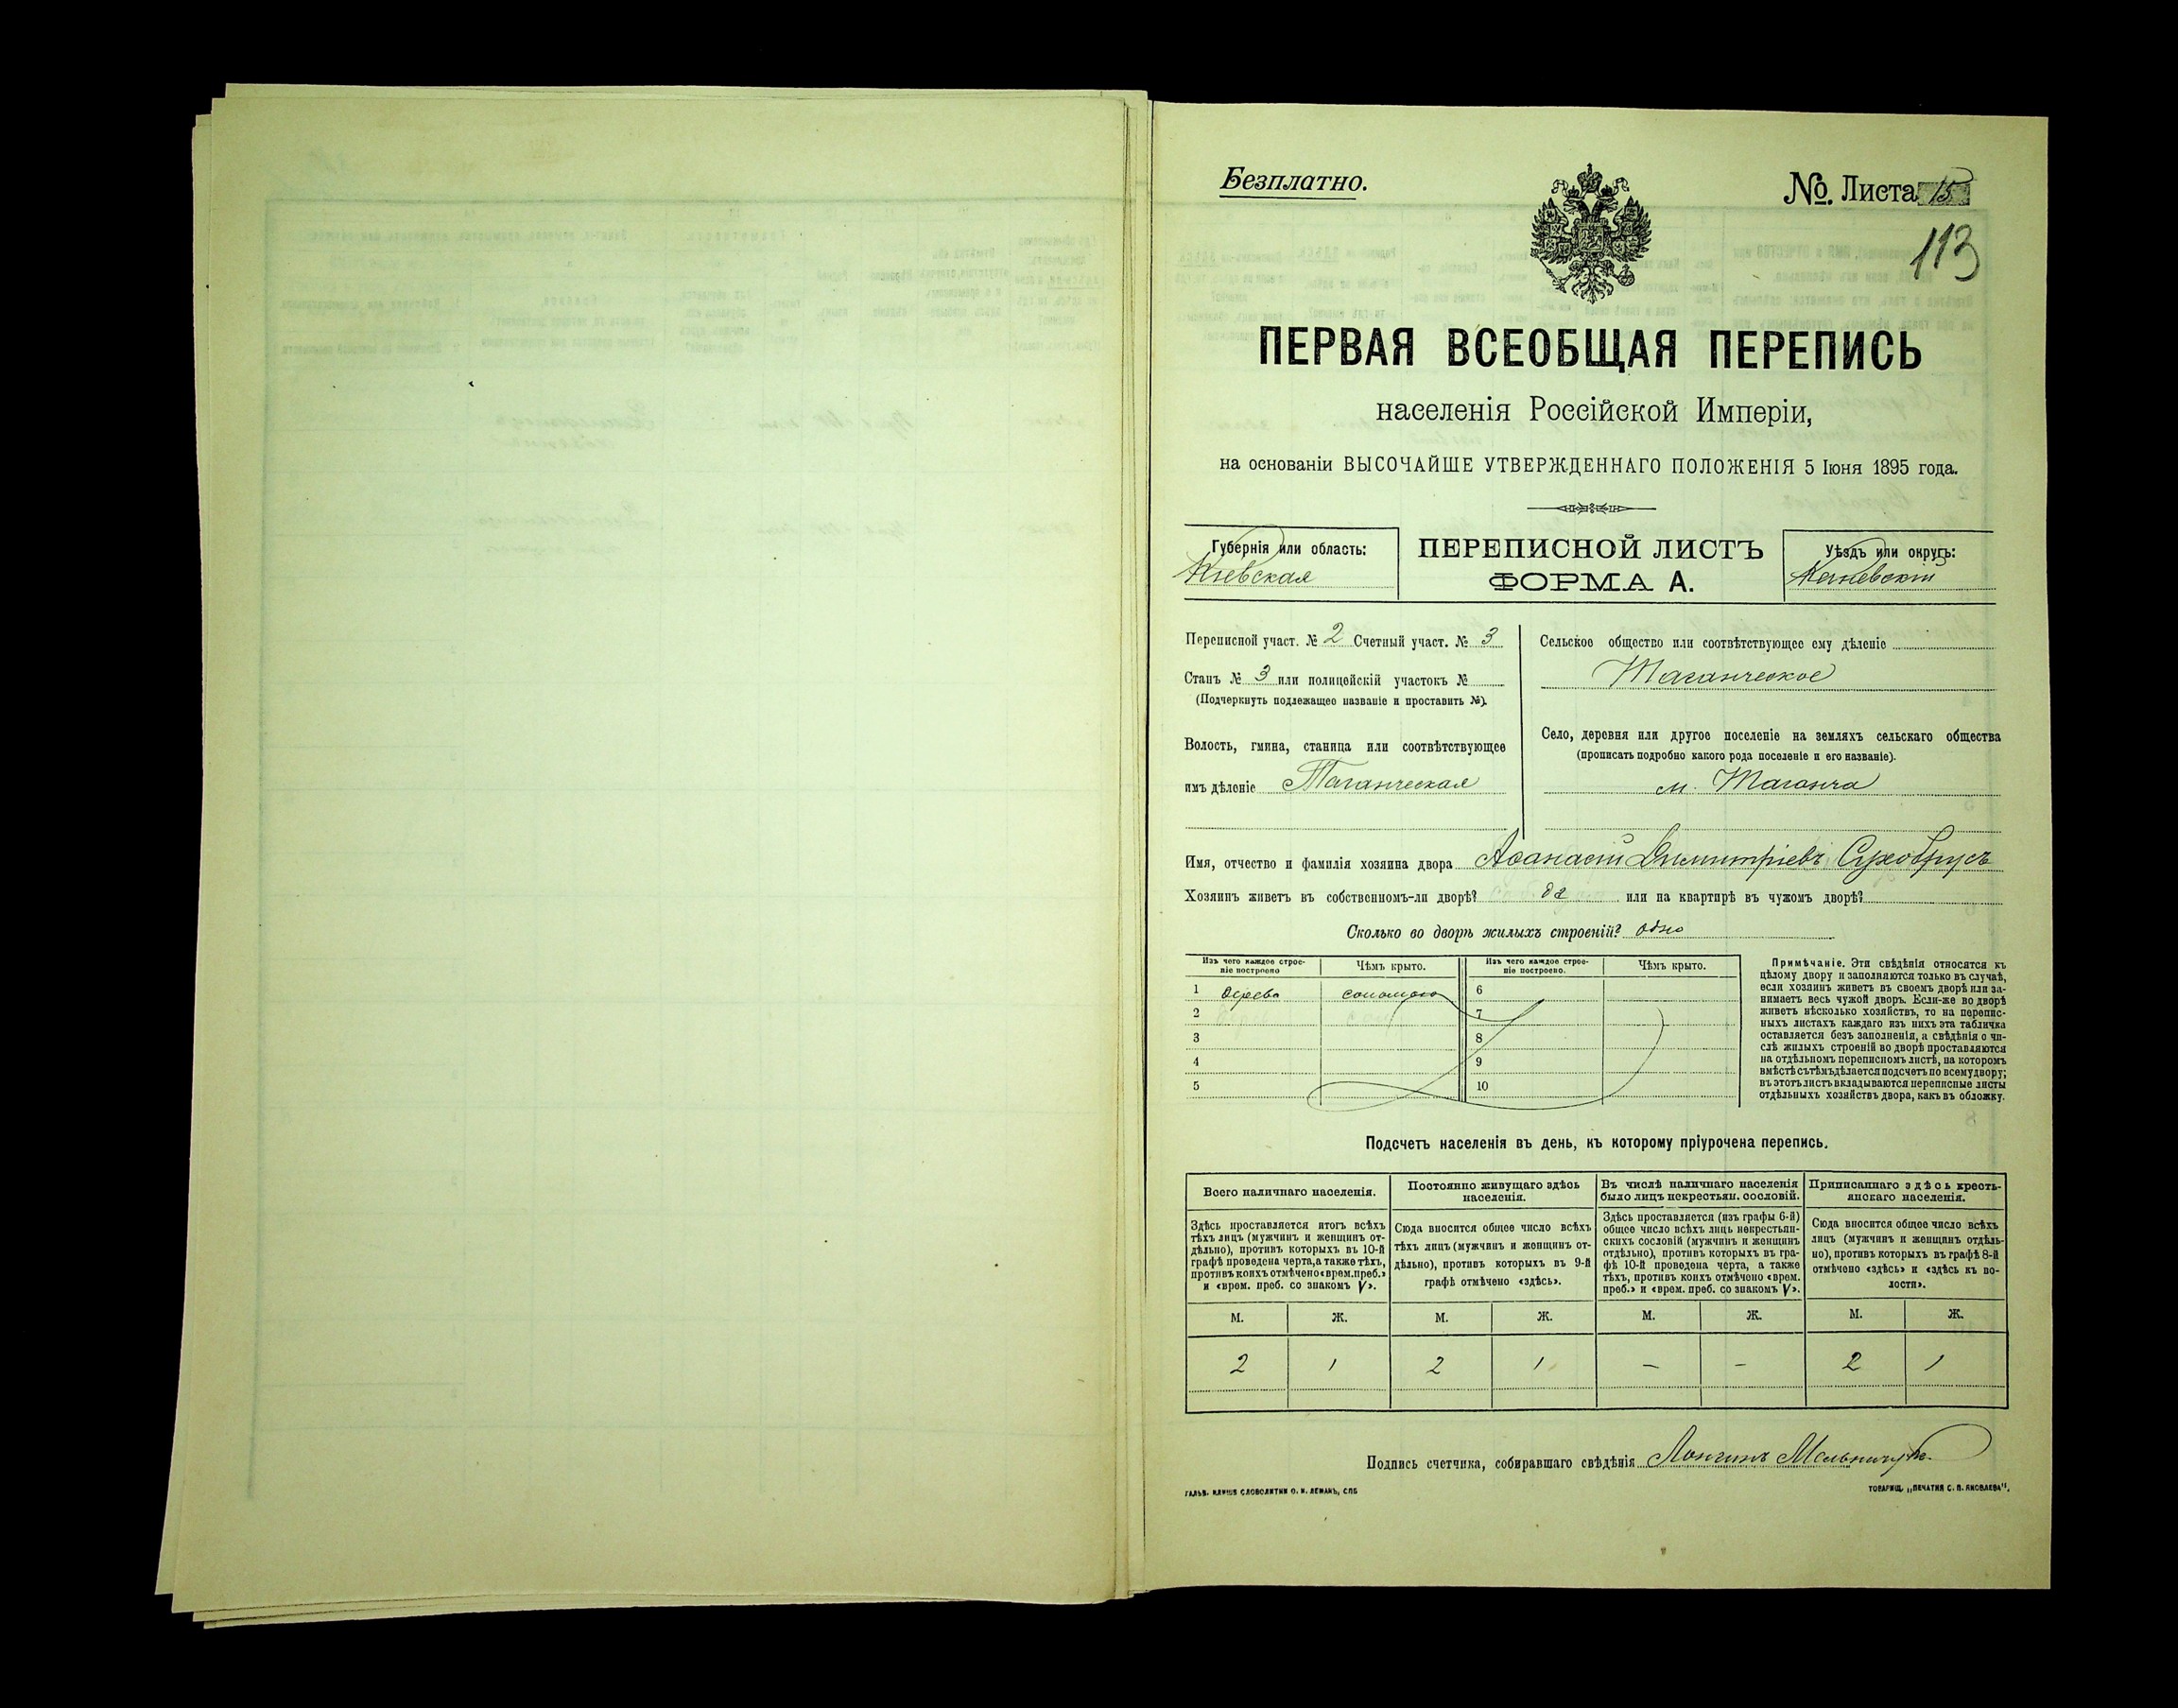 Безплатно.
№. Листа 15
113
ПЕРВАЯ ВСЕОБЩАЯ ПЕРЕПИСЬ
населенія Россійской Имперіи,
на основаніи ВЫСОЧАЙШЕ УТВЕРЖДЕННАГО ПОЛОЖЕНІЯ 5 Іюня 1895 года.
Губернія или область:
Кіевская
ПЕРЕПИСНОЙ ЛИСТЪ
ФОРМА А.
Уѣздъ или округъ:
Каневскій
Переписной участ. № 2 Счетный участ. № 3
Станъ № 3 или полицейскій участокъ №
(Подчеркнуть подлежащее названіе и проставить №).
Волость, гмина, станица или соотвѣтствующее
имъ дѣленіе Таганческая
Сельское общество или соотвѣтствующее ему дѣленіе
Таганческое
Село, деревня или другое поселеніе на земляхъ сельскаго общества
(прописать подробно какого рода поселеніе и его названіе).
м. Таганча
Имя, отчество и фамилія хозяина двора Аѳанасій Димитріевъ Сухобрусъ
Хозяинъ живетъ въ собственномъ-ли дворѣ? да или на квартирѣ въ чужомъ дворѣ?
Сколько во дворѣ жилыхъ строеній? одно
Изъ чего каждое строе-
ніе построено
Чѣмъ крыто.
Изъ чего каждое строе-
ніе построено.
Чѣмъ крыто.
1 дерева соломою 6
2 7
3 8
4 9
5 10
Примѣчаніе. Эти свѣдѣнія относятся къ
цѣлому двору и заполняются только въ случаѣ,
если хозяинъ живетъ въ своемъ дворѣ или за-
нимаетъ весь чужой дворъ. Если-же во дворѣ
живетъ нѣсколько хозяйствъ, то на перепис-
ныхъ листахъ каждаго изъ нихъ эта табличка
оставляется безъ заполненія, а свѣдѣнія о чи-
слѣ жилыхъ строеній во дворѣ проставляются
на отдѣльномъ переписномъ листѣ, на которомъ
вмѣстѣ сътѣмъ дѣлается подсчетъ по всему двору;
въ этотъ листъ вкладываются переписные листы
отдѣльныхъ хозяйствъ двора, какъ въ обложку.
Подсчетъ населенія въ день, къ которому пріурочена перепись.
Всего наличнаго населенія.
Постоянно живущаго здѣсь
населенія.
Въ числѣ наличнаго населенія
было лицъ некрестьян. сословій.
Приписаннаго здѣсь кресть-
янскаго населенія.
Здѣсь проставляется итогъ всѣхъ
тѣхъ лицъ (мужчинъ и женщинъ от-
дѣльно), противъ которыхъ въ 10-й
графѣ проведена черта, а также тѣхъ,
противъ коихъ отмѣчено «врем. преб.»
и «врем. преб. со знакомъ V».
Сюда вносится общее число всѣхъ
тѣхъ лицъ (мужчинъ и женщинъ от-
дѣльно), противъ которыхъ въ 9-й
графѣ отмѣчено «здѣсь».
Здѣсь проставляется (изъ графы 6-й)
общее число всѣхъ лицъ некрестьян-
скихъ сословій (мужчинъ и женщинъ
отдѣльно), противъ которыхъ въ гра-
фѣ 10-й проведена черта, а также
тѣхъ, противъ коихъ отмѣчено «врем.
преб.» и «врем. преб. со знакомъ V».
Сюда вносится общее число всѣхъ
лицъ (мужчинъ и женщинъ отдѣль-
но), противъ которыхъ въ графѣ 8-й
отмѣчено «здѣсь» и «здѣсь къ во-
лости».
М. Ж. М. Ж. М. Ж. М. Ж.
2 1 2 1 – – 2 1
Подпись счетчика, собиравшаго свѣдѣнія Лонгинъ Мельничукъ.
ГАЛЬВ. КЛИШЕ СЛОВОЛИТНИ О. И. ЛЕМАНЪ, СПБ
ТОВАРИЩ. „ПЕЧАТНЯ С. П. ЯКОВЛЕВА",